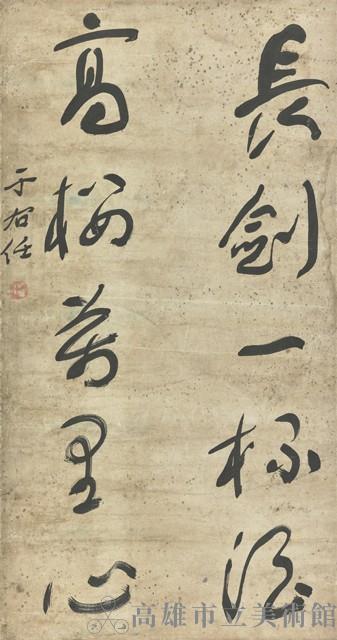 長劍一杯酒
高樓萬里心
于右任
高雄市立美術館